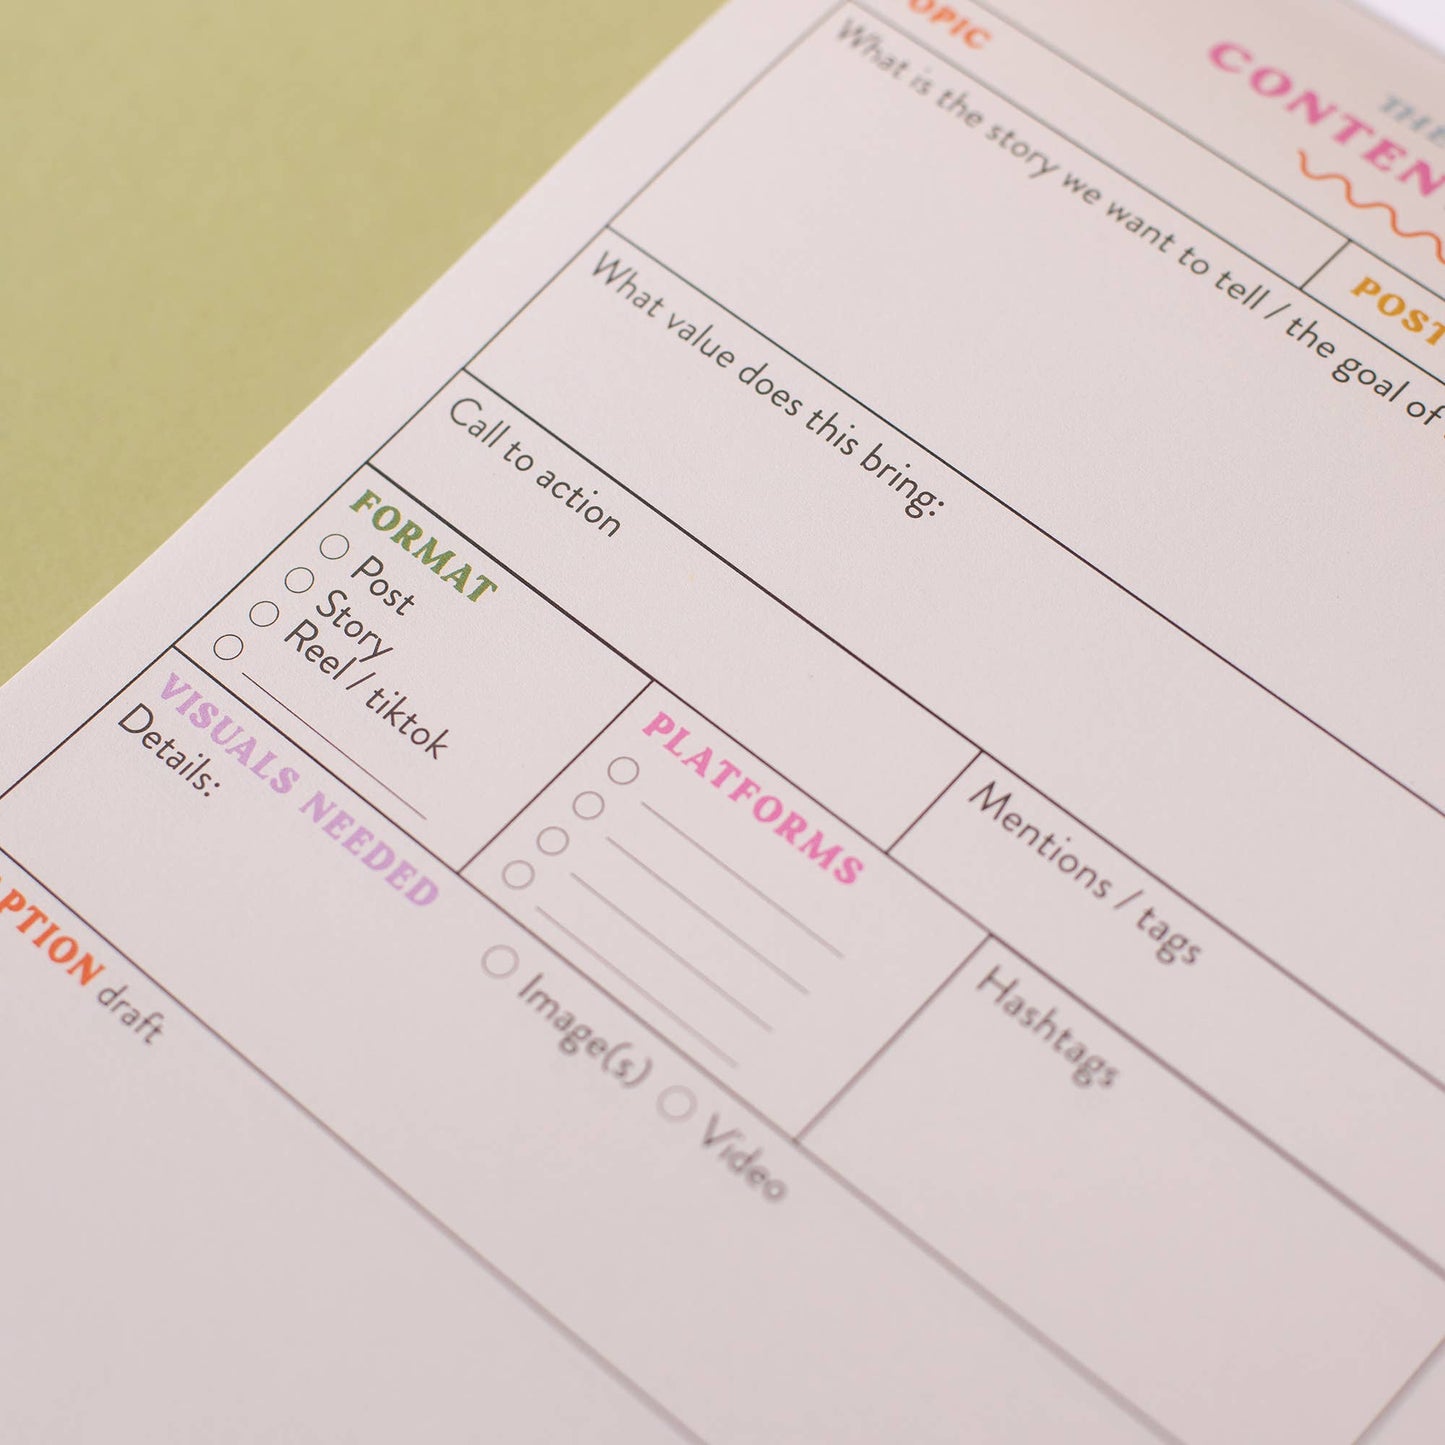 THE
CONTEN
OPIC
POST
What is the story we want to tell / the goal of
What value does this bring:
Call to action
Mentions / tags
FORMAT
Post
Story
Reel / tiktok
PLATFORMS
Hashtags
VISUALS NEEDED
Image(s)
Video
Details:
APTION draft